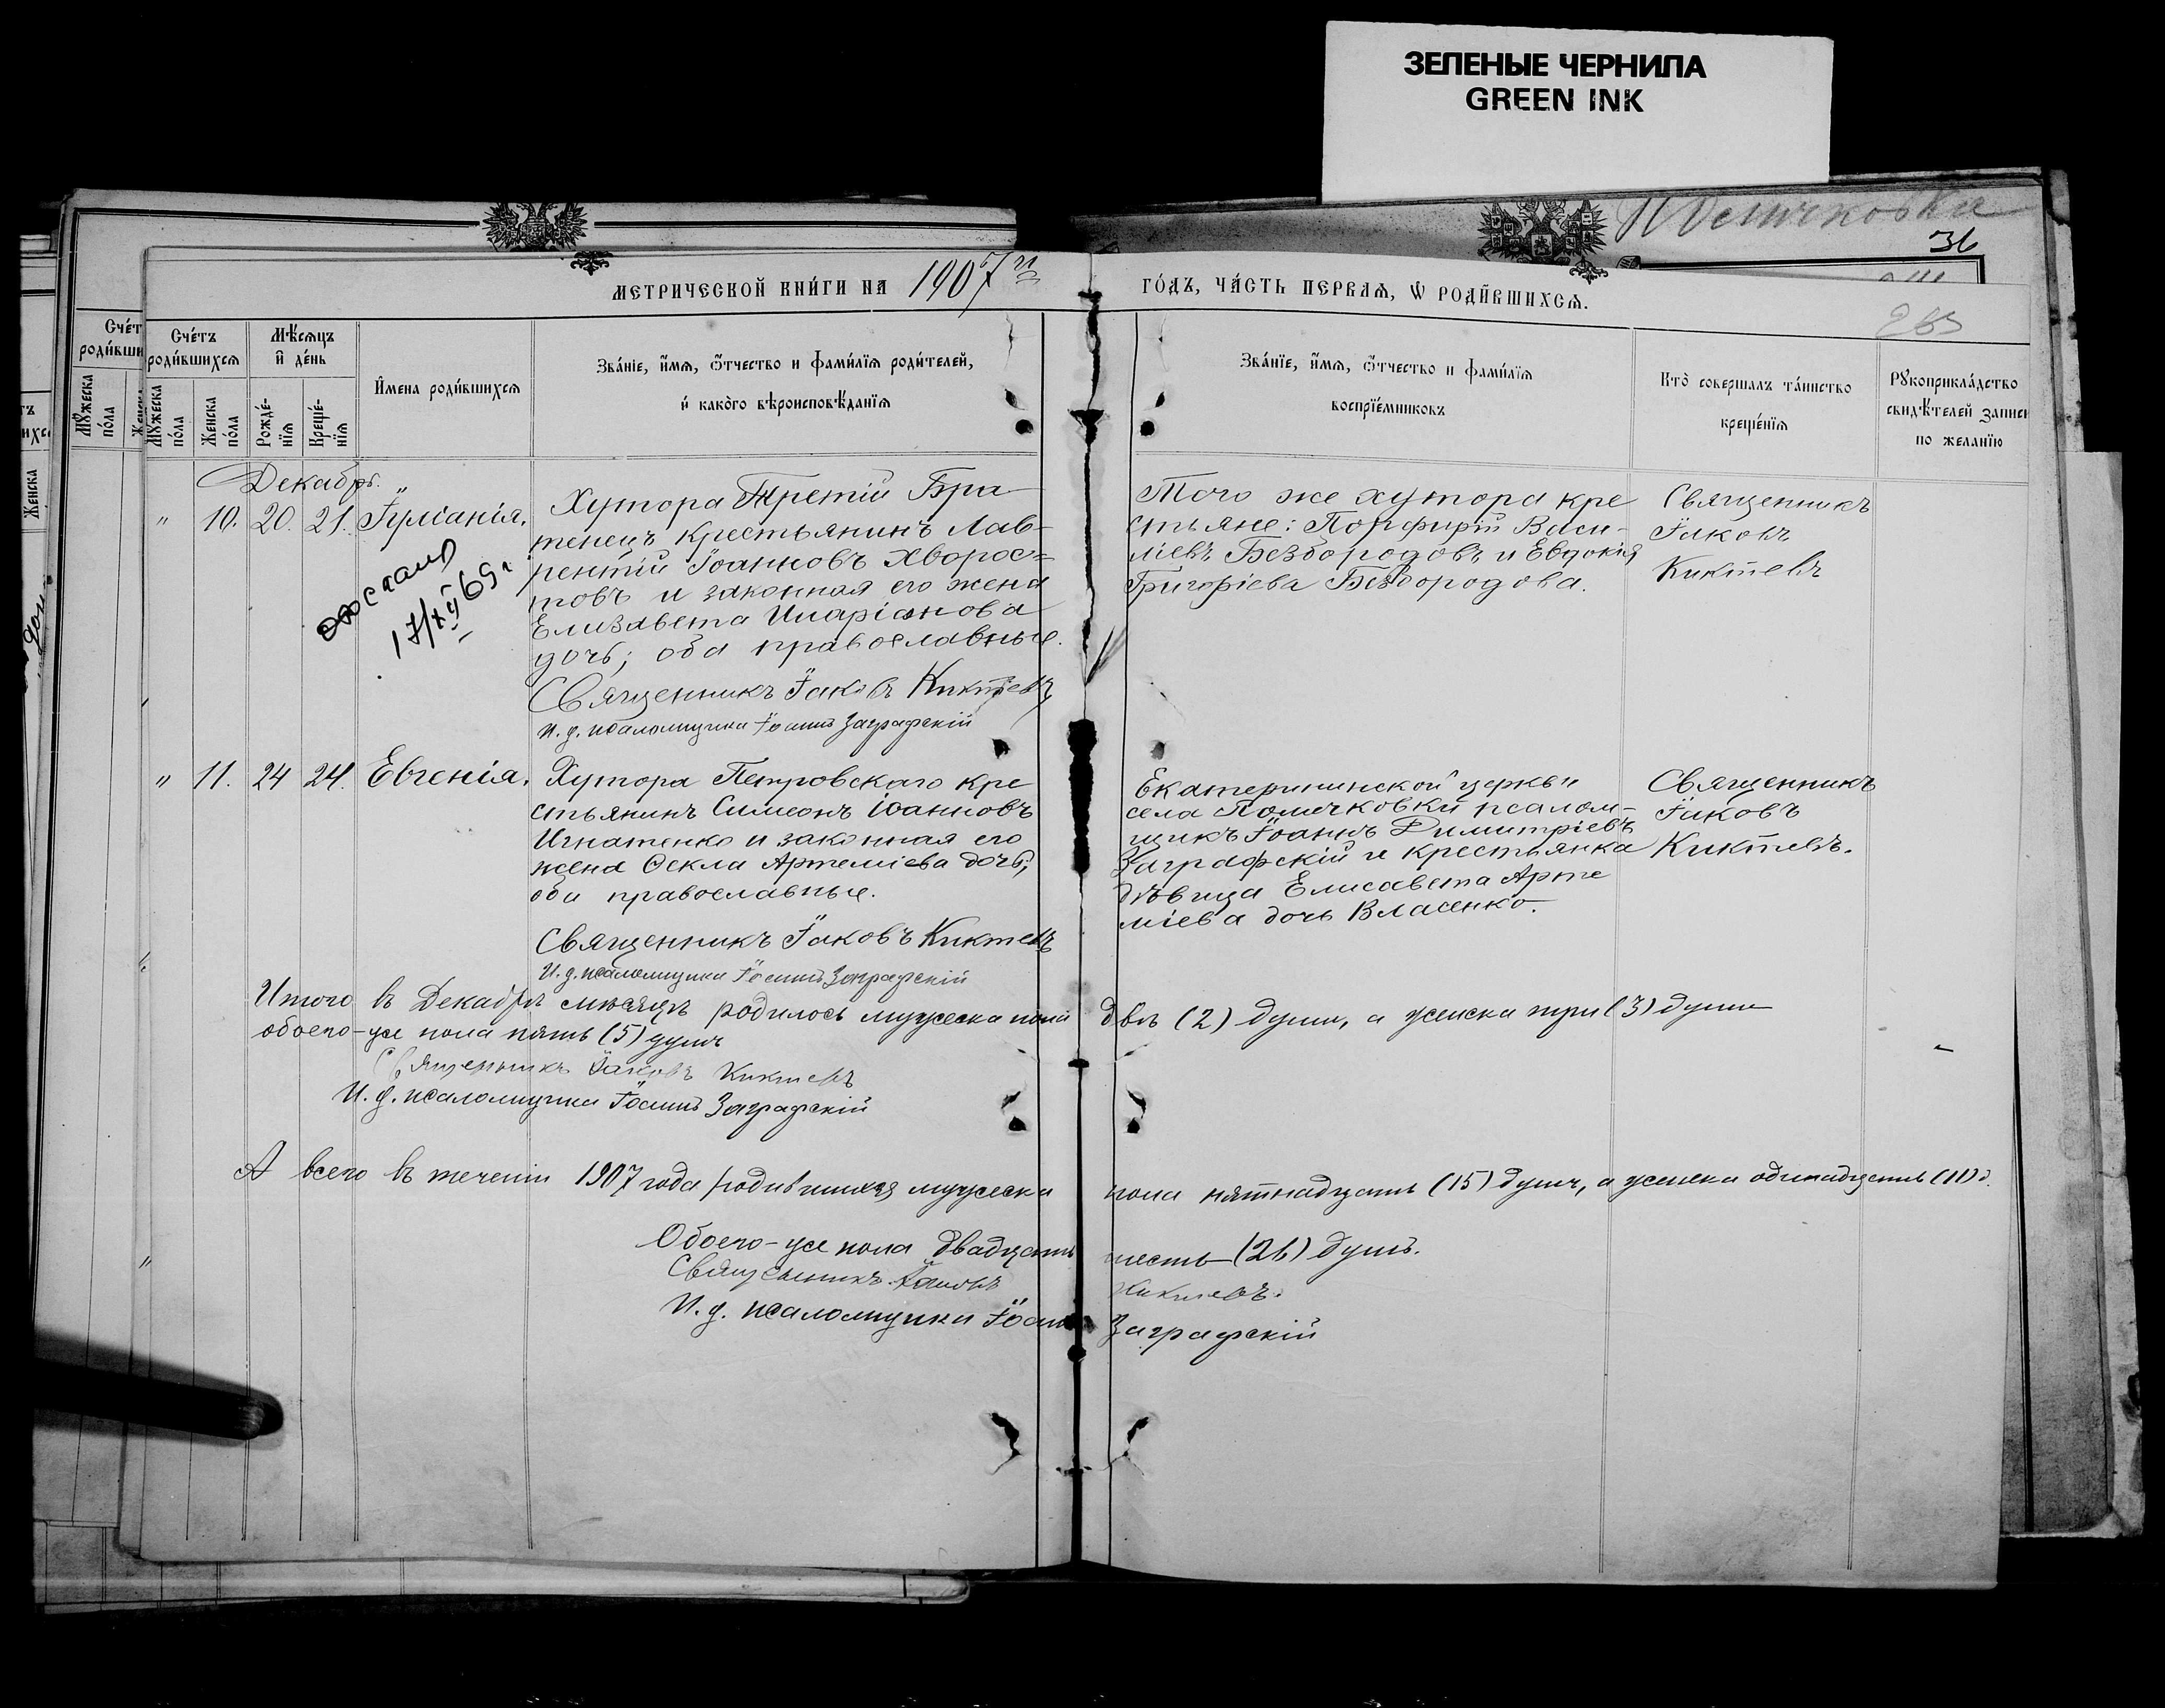 ЗЕЛЕНЫЕ ЧЕРНИЛА
GREEN INK
36
МЕТРИЧЕСКОЙ КНИ́ГИ НА 1907й
ГО́ДЪ, ЧА́СТЬ ПЕРВАѦ, Ѡ РОДИ́ВШИХСѦ.
263
Сче́тъ роди́вшихсѧ
Мѣ́сѧцъ и҆ де́нь
И҆мена роди́вшихсѧ
Зва́нїе, и҆́мѧ, ѻ҆́тчество и фами́лїѧ роди́телей,
и҆ како́гѡ вѣроисповѣ́данїѧ
Зва́нїе, и҆́мѧ, ѻ҆́тчество и фами́лїѧ
воспрїе́мниковъ
Кто̀ совершалъ та́инство
креще́нїѧ
Рꙋкоприкла́дство
свидѣ́телей записи
по жела́нїю
Мꙋ́жеска по́ла
Же́нска по́ла
Рожде́нїѧ
Креще́нїѧ
Декабрь.
" 10. 20. 21. Іуліанія.
Хутора Третій Бра
тенецъ крестьянинъ Лав-
рентій Іоанновъ Хворос=
товъ и законная его жена
Елизавета Иларіонова
дочь; оба православные.
Священникъ Іаковъ Киктевъ
И. д. псаломщика Іоаннъ Заграфскій
17/XII 69 г
Того же хутора кре
стьяне: Порфирій Васи-
ліевъ Безбородовъ и Евдокія
Григоріева Безбородова.
Священникъ
Іаковъ
Киктевъ
" 11. 24 24. Евгенія.
Хутора Петровскаго кре
стьянинъ Симеонъ Іоанновъ
Игнатенко и законная его
жена Ѳекла Артеміева дочь;
оба православные.
Священникъ Іаковъ Киктевъ
И. д. псаломщика Іоаннъ Заграфскій
Екатерининской церкви
села Помечковки псалом-
щикъ Іоаннъ Димитріевъ
Заграфскій и крестьянка
дѣвица Елисавета Арте
міева дочь Власенко.
Священникъ
Іаковъ
Киктевъ.
Итого въ Декабрѣ мѣсяцѣ родилось мужеска пола двѣ (2) души, а женска три (3) души
обоего-же пола пять (5) душъ
Священникъ Іаковъ Киктевъ
И. д. псаломщика Іоаннъ Заграфскій
А всего въ теченіи 1907 года родившихся мужеска пола пятнадцать (15) душъ, а женска одинадцать (11) д.
Обоего-же пола двадцать шесть (26) душъ.
Священникъ Іаковъ Киктевъ.
И. д. псаломщика Іоаннъ Заграфскій